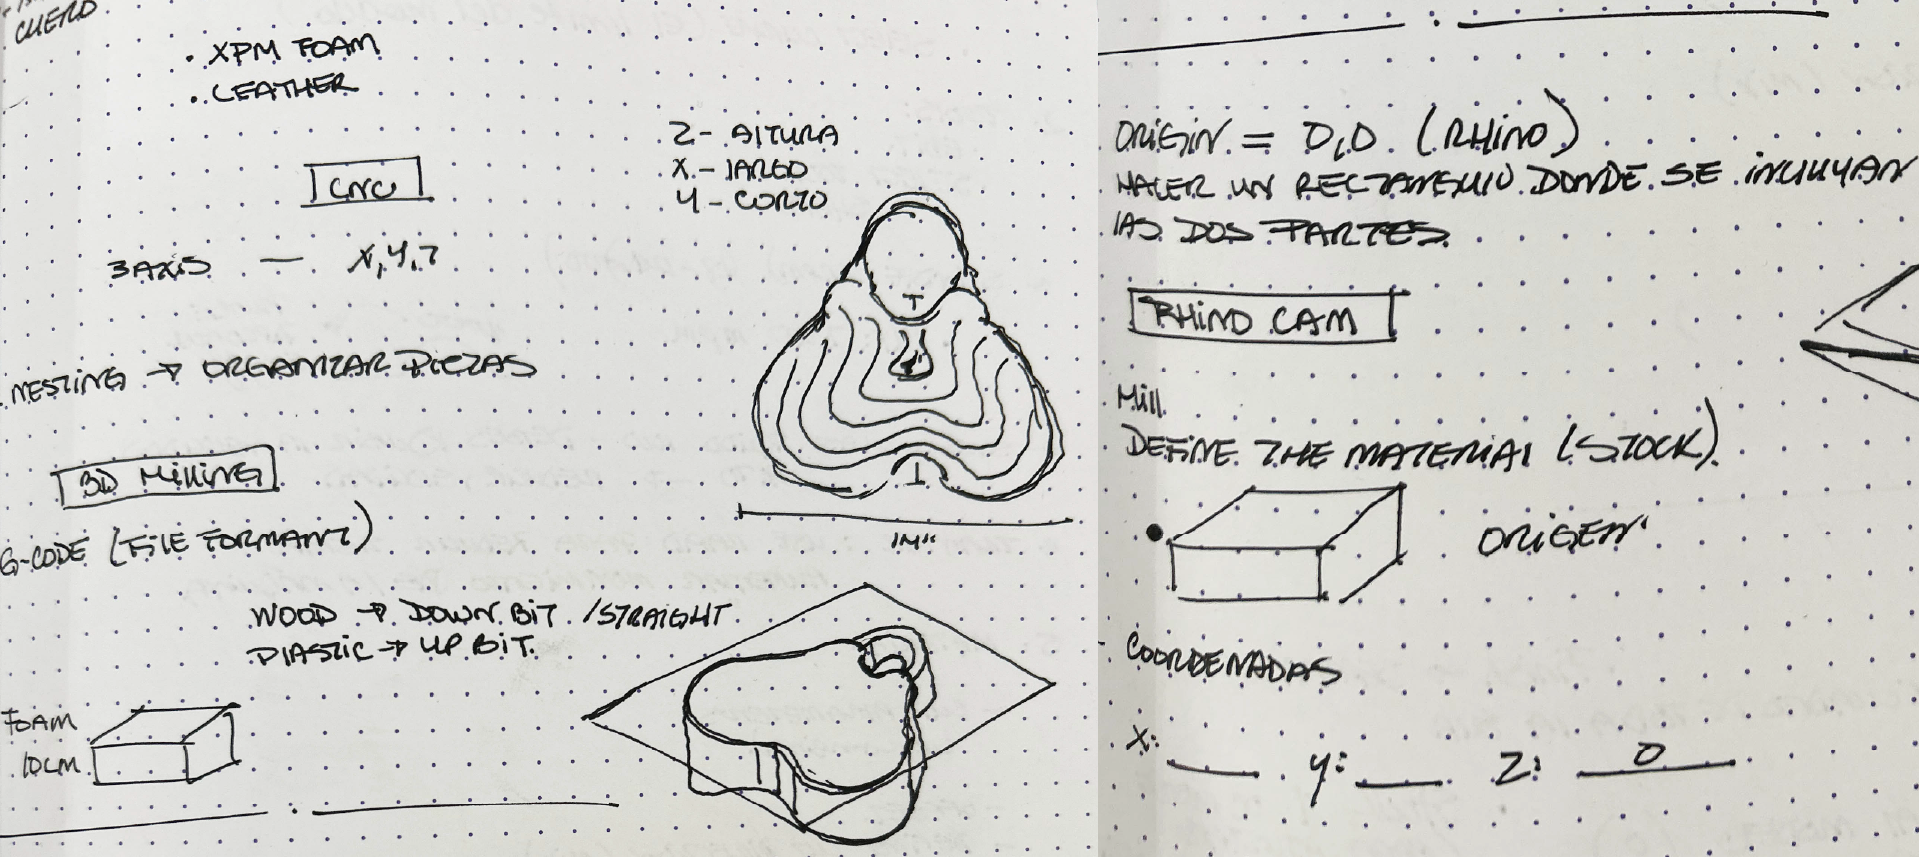 CUERO
• XPM FOAM
• LEATHER
CNC
3 AXIS — X, Y, Z
Z - ALTURA
X - LARGO
Y - CORTO
NESTING → ORGANIZAR PIEZAS
3D MILLING
G-CODE (FILE FORMANT)
1M"
WOOD → DOWN BIT / STRAIGHT
PLASTIC → UP BIT.
FOAM
10CM
ORIGIN = 0,0 (RHINO)
HACER UN RECTANGULO DONDE SE INCLUYAN
LAS DOS PARTES.
RHINO CAM
Mill
DEFINE THE MATERIAL (STOCK)
ORIGEN
COORDENADAS
X: ____ Y: ____ Z: 0